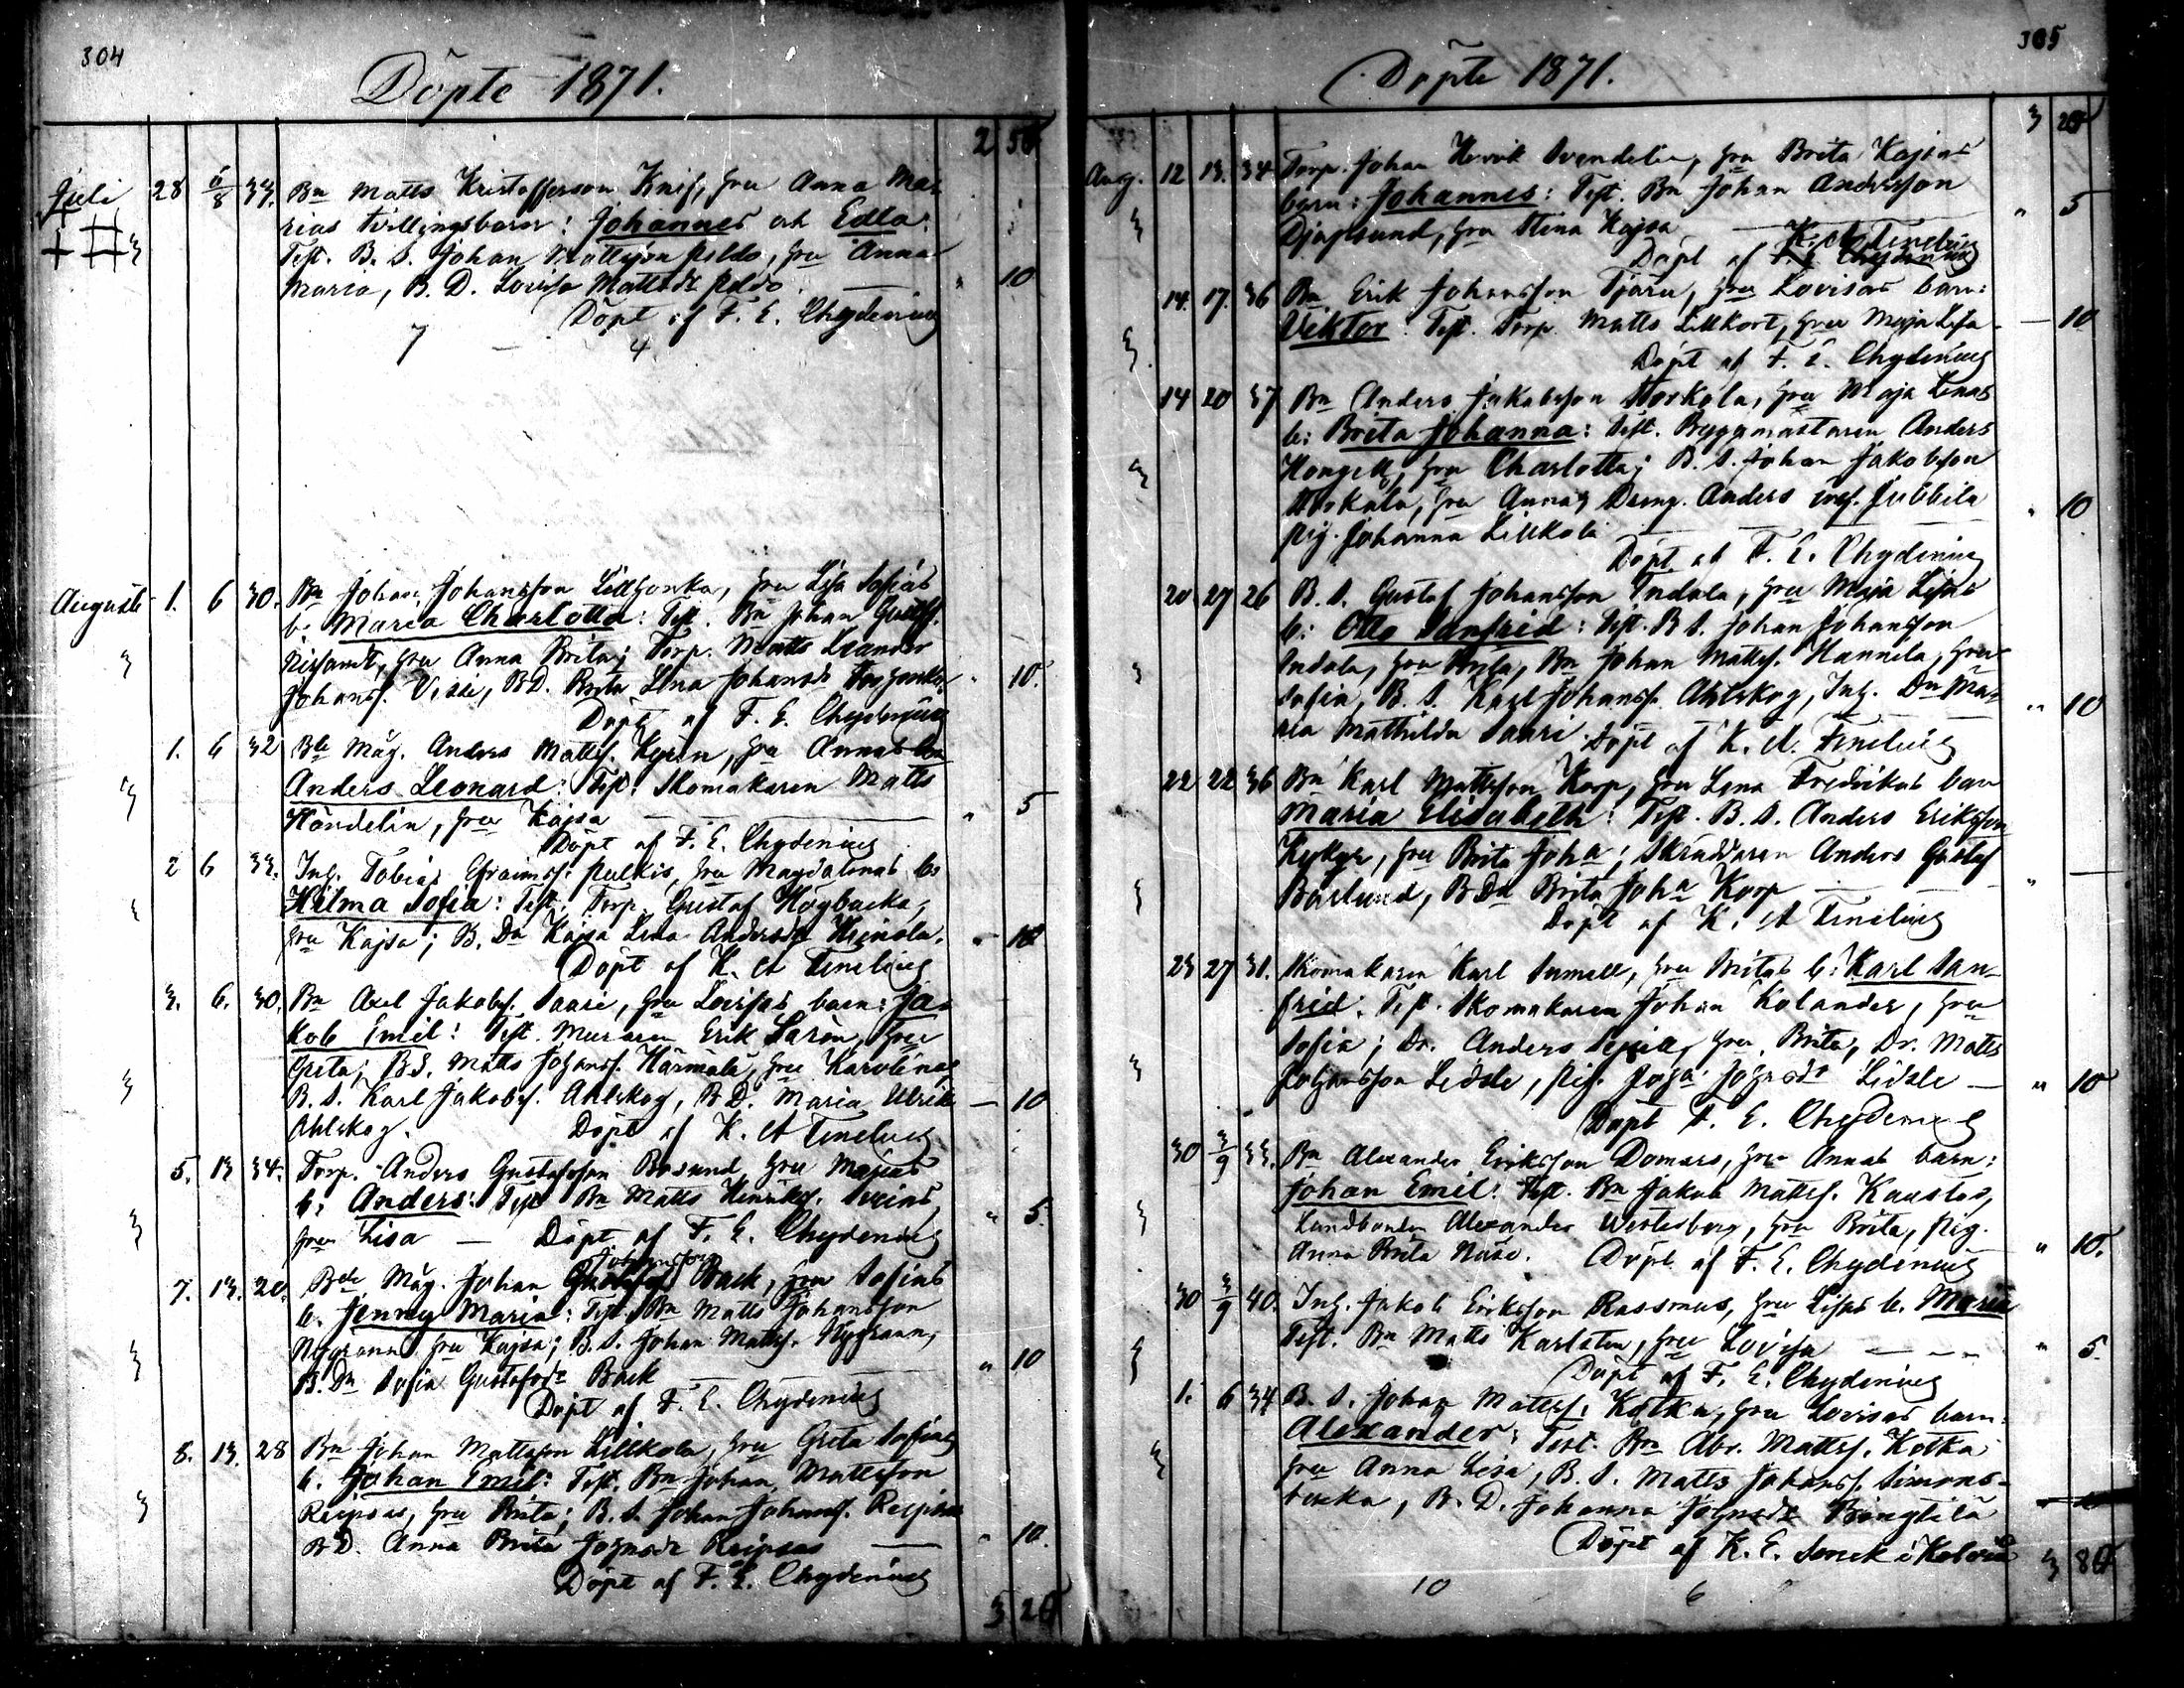 304
Döpte 1871.
2 50
Juli 28 6/8 33. Bn Matts Kristoffersson Knif, hru Anna Ma-
rias tvillingsbarn: Johannes och Edla:
Test. B. S. Johan Mattsson Peldo, hru Anna
Maria, B. D. Lovisa Mattsdr Peldo. — " 10
Döpt af F. E. Chydenius
7 — 4
Augusti 1. 6 30. Bn Johan Johansson, hru Lisa Sofias
b. Maria Charlotta: Test. Bn Johan
hru Anna Brita; Torp. Matts Leander
Johanss. Vissi, BD. Brita Lena Johansdr " 10.
Döpt af F. E. Chydenius
1. 6 32 Bde Måg. Anders Mattss. hru Annas
Anders Leonard: Test. Skomakaren Matts
Händelin, hru Kajsa — " 5
Döpt af F. E. Chydenius
2 6 33. Inh. Tobias Efraimss. Pulkis, hru Magdalenas b:
Hilma Sofia: Test. Torp. Gustaf Högbacka,
hru Kajsa; B. Dn Kajsa Lena Andersdr " 10
Döpt af K. A Tenelius
3. 6. 30. Bn Axel Jakobss. Saari, hru Lovisas barn: Ja-
kob Emil: Test. Muraren Erik Sarén, hru
Greta; BS. Matts Johanss. Härmälä, hru Karolina,
B. S. Karl Jakobss. Ahlskog, BD. Maria Ulrika — 10
Ahlskog. Döpt af K. A Tenelius
5. 13 34. Torp. Anders Gustafsson Bosund hru Majas
b: Anders: Test Bn Matts Henrikss.
hru Lisa — Döpt af F. E. Chydenius " 5.
Johansson
7. 13. 20. Bde Måg. Johan Back, hru Sofias
b. Jenny Maria: Test. Bn Matts Johansson
Nygrann hru Kajsa; B. S. Johan Mattss. Nygrann,
B. Dn Sofia Gustafsdr Back — " 10
Döpt af F. E. Chydenius
8. 13. 28 Bn Johan Mattsson Lillkola, hru Greta Sofias
b. Johan Emil: Test. Bn Johan Mattsson
Reipsar, hru Brita; B. S. Johan Johanss. Reipsar
BD. Anna Brita Johnsdr Reipsar — " 10.
Döpt af F. E. Chydenius
3 20
305
Döpte 1871.
3 20
Aug. 12 13. 34 Torp. Johan Henrik Svendelin, hru Brita Kajsas
barn: Johannes: Test. Bn Johan Andersson
Djupsund, hru Stina Kajsa — " 5
K. A Tenelius
Döpt af F. E. Chydenius
14. 17. 36 Bn Erik Johansson Tjäru, hru Lovisas barn:
Viktor: Test. Torp. Matts Lillkort, hru Maja Lisa — 10
Döpt af F. E. Chydenius
14 20 37 Bn Anders Jakobsson Storkola, hru Maja Lenas
b: Brita Johanna: Test. Byggmästaren Anders
hru Charlotta; B. S. Johan Jakobsson
Storkola, hru Anna; Dreng. Anders
Pig. Johanna Lillkola — " 10
Döpt af F. E. Chydenius
20 27 26 B. S. Gustaf Johansson Indola, hru Maja Lisas
b: Otto Sanfrid: Test. B S. Johan Johansson
Indola, hru Brita, Bn Johan Mattss. Hannila, hru
Sofia, B. S. Karl Johanss. Ahlskog, Inh. Dn Ma- " 10
ria Mathilda Saari. Döpt af K. A. Tenelius
22 22 36 Bn Karl Mattsson Korp, hru Lena Fredrikas barn
Maria Elisabeth: Test. B. S. Anders Eriksson
hru Brita Joha; Skräddaren Anders Gustaf
Barlund, B Dn Brita Joha Korp — " —
Döpt af K. A Tenelius
23 27 31. Skomakaren Karl Sumell, hru Britas b: Karl San-
frid: Test. Skomakaren Johan Kolander, hru
Sofia; Dr. Anders hru Brita, Dr. Matts
Johansson Lidsle, Pig. Joha Johnsdr Lidsle — " 10
Döpt F. E. Chydenius
30 3/9 33. Bn Alexander Eriksson Domars, hru Annas barn:
Johan Emil: Test. Bn Jakob Mattss. Kaustar,
Landbonden Alexander Westerberg, hru Brita, Pig.
Anna Brita Näse. Döpt af F. E. Chydenius " 10.
30 3/9 40. Inh. Jakob Eriksson Rassmus, hru Lisas b. Maria
Test. Bn Matts Karlsten, hru Lovisa — " 5.
Döpt af F. E. Chydenius
1. 6 34 B. S. Johan Mattss. Kotka, hru Lovisas barn:
Alexander: Test. Bn Abr. Mattss. Kotka
hru Anna Lisa, B. S. Matts Johanss. Simons-
backa, B. D. Johanna Johnsdr
Döpt af K. E. i
3 80
10 6